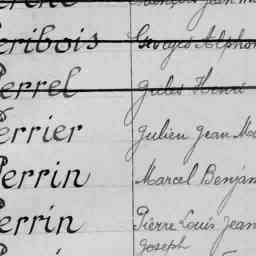 eribois Georges Alphon
errel Jules Henri
errier Julien Jean Ma
Perrin Marcel Benjam
errin Pierre Louis Jean
Joseph